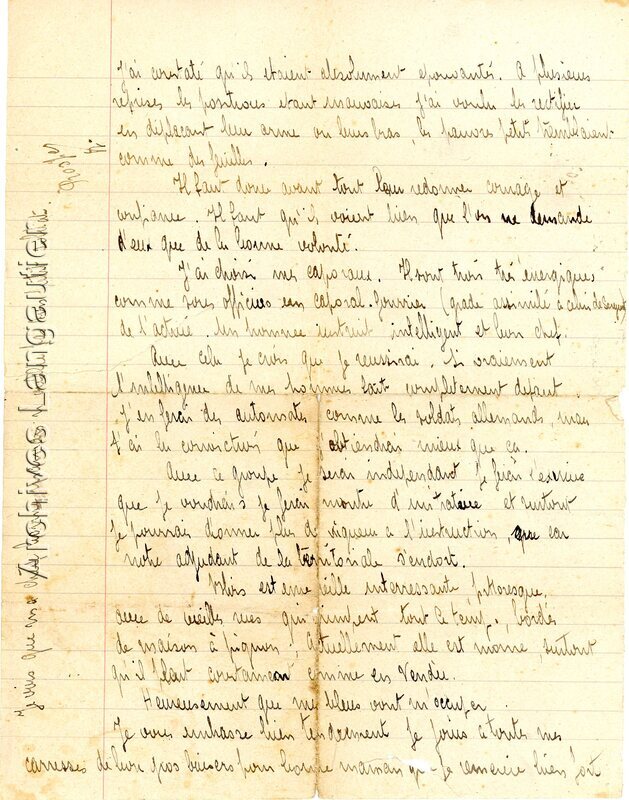 J'ai constaté qu'ils etaient absolument epouvantés. A plusieurs
reprises les positions etant mauvaises j'ai voulu les rectifier
en déplaçant leur arme ou leurs bras, les pauvres petits tremblaient
comme des feuilles.
Il faut donc avant tout leur redonner courage et
confiance. Il faut qu'ils voient bien que l'on ne demande
d'eux que de la bonne volonté.
J'ai choisi mes caporaux. Ils sont trois très énergiques
comme sous officiers un caporal-fourrier (grade assimilé à celui de sergent
de l'active. un homme instruit intelligent et leur chef.
Avec cela je crois que je reussirai. Si vraiement
l'intelligence de mes hommes fait completement defaut
j'en ferai des automates comme les soldats allemands, mais
j'ai la conviction que j'obtiendrai mieux que ça.
Avec ce groupe je serai independant je ferai l'exercice
que je voudrais je ferai montre d'initiative et surtout
je pourrais donner plus de vigueur a l'instruction, que car
notre adjudant de la territoriale s'endort.
est une ville interressante, pittoresque,
avec de vieilles rues qui grimpent tout le temps, bordés
de maisons à pignons; Actuellement elle est morne, surtout
qu'il pleut constament comme en Vendée.
Heureusement que mes bleus vont m'occuper
Je vous embrasse bien tendrement je joins a toutes mes
carresses de bons gros baisers pour bonne maman que je remercie bien fort
Je vois que ma chère